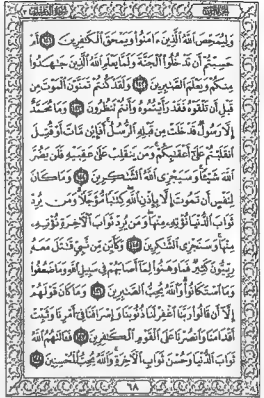 وَلِيُمَحِّصَ اللَّهُ الَّذِينَ ءَامَنُوا وَيَمْحَقَ الْكَافِرِينَ ١٤١ أَمْ
حَسِبْتُمْ أَن تَدْخُلُوا الْجَنَّةَ وَلَمَّا يَعْلَمِ اللَّهُ الَّذِينَ جَاهَدُوا
مِنكُمْ وَيَعْلَمَ الصَّابِرِينَ ١٤٢ وَلَقَدْ كُنتُمْ تَمَنَّوْنَ الْمَوْتَ مِن
قَبْلِ أَن تَلْقَوْهُ فَقَدْ رَأَيْتُمُوهُ وَأَنتُمْ تَنظُرُونَ ١٤٣ وَمَا مُحَمَّدٌ
إِلَّا رَسُولٌ قَدْ خَلَتْ مِن قَبْلِهِ الرُّسُلُ أَفَإِيْن مَّاتَ أَوْ قُتِلَ
انقَلَبْتُمْ عَلَىٰ أَعْقَابِكُمْ وَمَن يَنقَلِبْ عَلَىٰ عَقِبَيْهِ فَلَن يَضُرَّ
اللَّهَ شَيْئًا وَسَيَجْزِي اللَّهُ الشَّاكِرِينَ ١٤٤ وَمَا كَانَ
لِنَفْسٍ أَن تَمُوتَ إِلَّا بِإِذْنِ اللَّهِ كِتَابًا مُّؤَجَّلًا وَمَن يُرِدْ
ثَوَابَ الدُّنْيَا نُؤْتِهِ مِنْهَا وَمَن يُرِدْ ثَوَابَ الْآخِرَةِ نُؤْتِهِ
مِنْهَا وَسَنَجْزِي الشَّاكِرِينَ ١٤٥ وَكَأَيِّن مِّن نَّبِيٍّ قَاتَلَ مَعَهُ
رِبِّيُّونَ كَثِيرٌ فَمَا وَهَنُوا لِمَا أَصَابَهُمْ فِي سَبِيلِ اللَّهِ وَمَا ضَعُفُوا
وَمَا اسْتَكَانُوا وَاللَّهُ يُحِبُّ الصَّابِرِينَ ١٤٦ وَمَا كَانَ قَوْلَهُمْ
إِلَّا أَن قَالُوا رَبَّنَا اغْفِرْ لَنَا ذُنُوبَنَا وَإِسْرَافَنَا فِي أَمْرِنَا وَثَبِّتْ
أَقْدَامَنَا وَانصُرْنَا عَلَى الْقَوْمِ الْكَافِرِينَ ١٤٧ فَآتَاهُمُ اللَّهُ
ثَوَابَ الدُّنْيَا وَحُسْنَ ثَوَابِ الْآخِرَةِ وَاللَّهُ يُحِبُّ الْمُحْسِنِينَ ١٤٨
٦٨